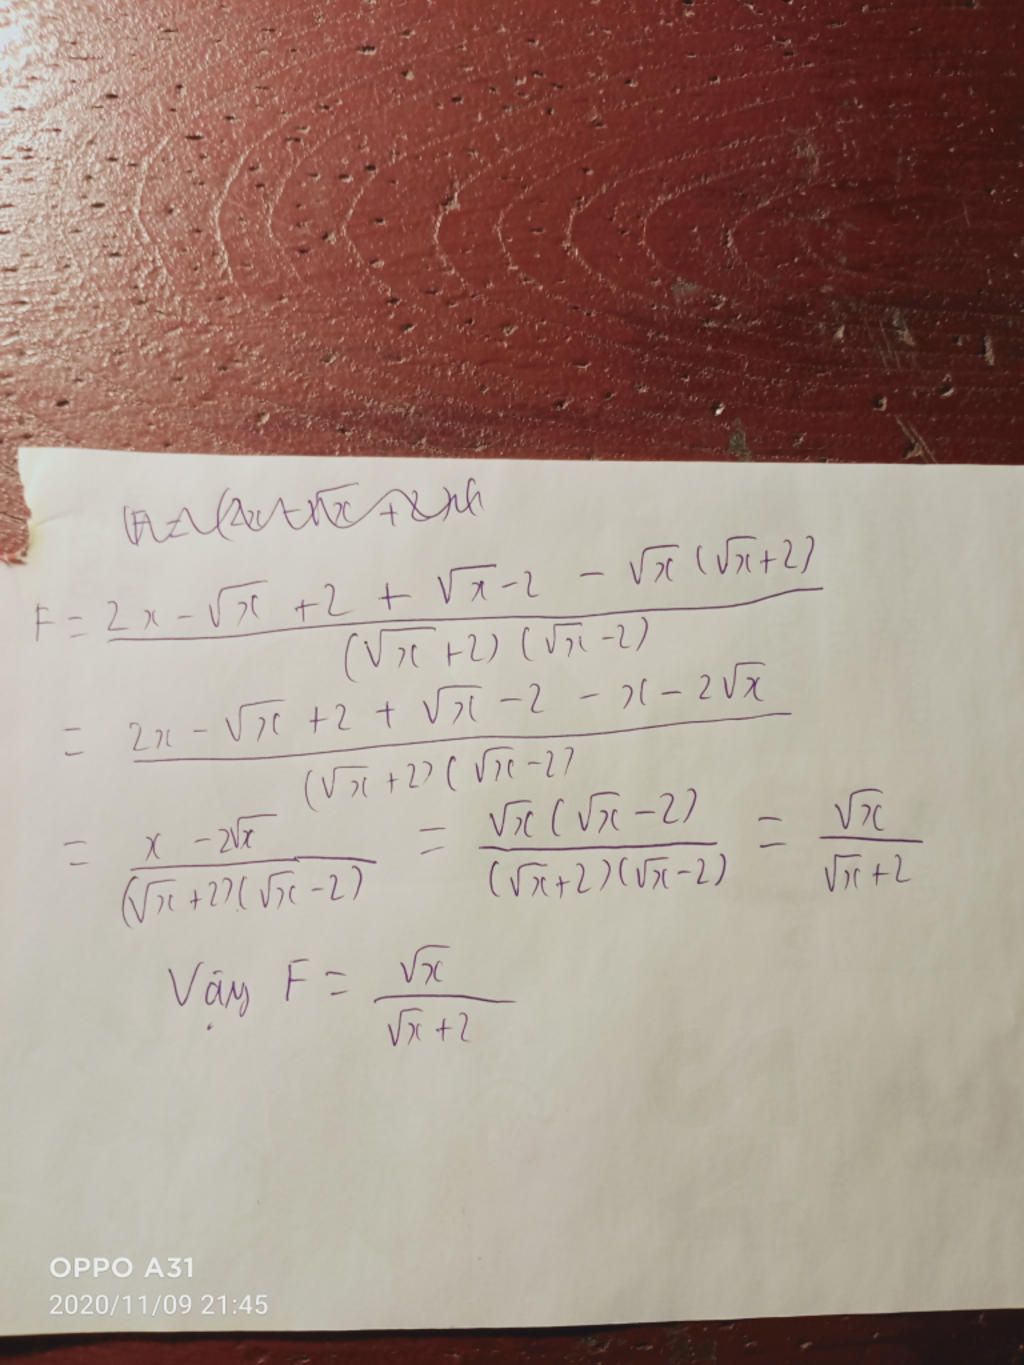 F = 2x - √x + 2 + √x - 2 - √x (√x + 2)
(√x + 2) (√x - 2)
= 2x - √x + 2 + √x - 2 - x - 2√x
(√x + 2) (√x - 2)
= x - 2√x = √x (√x - 2) = √x
(√x + 2) (√x - 2) (√x + 2) (√x - 2) √x + 2
Vậy F = √x
√x + 2
OPPO A31
2020/11/09 21:45